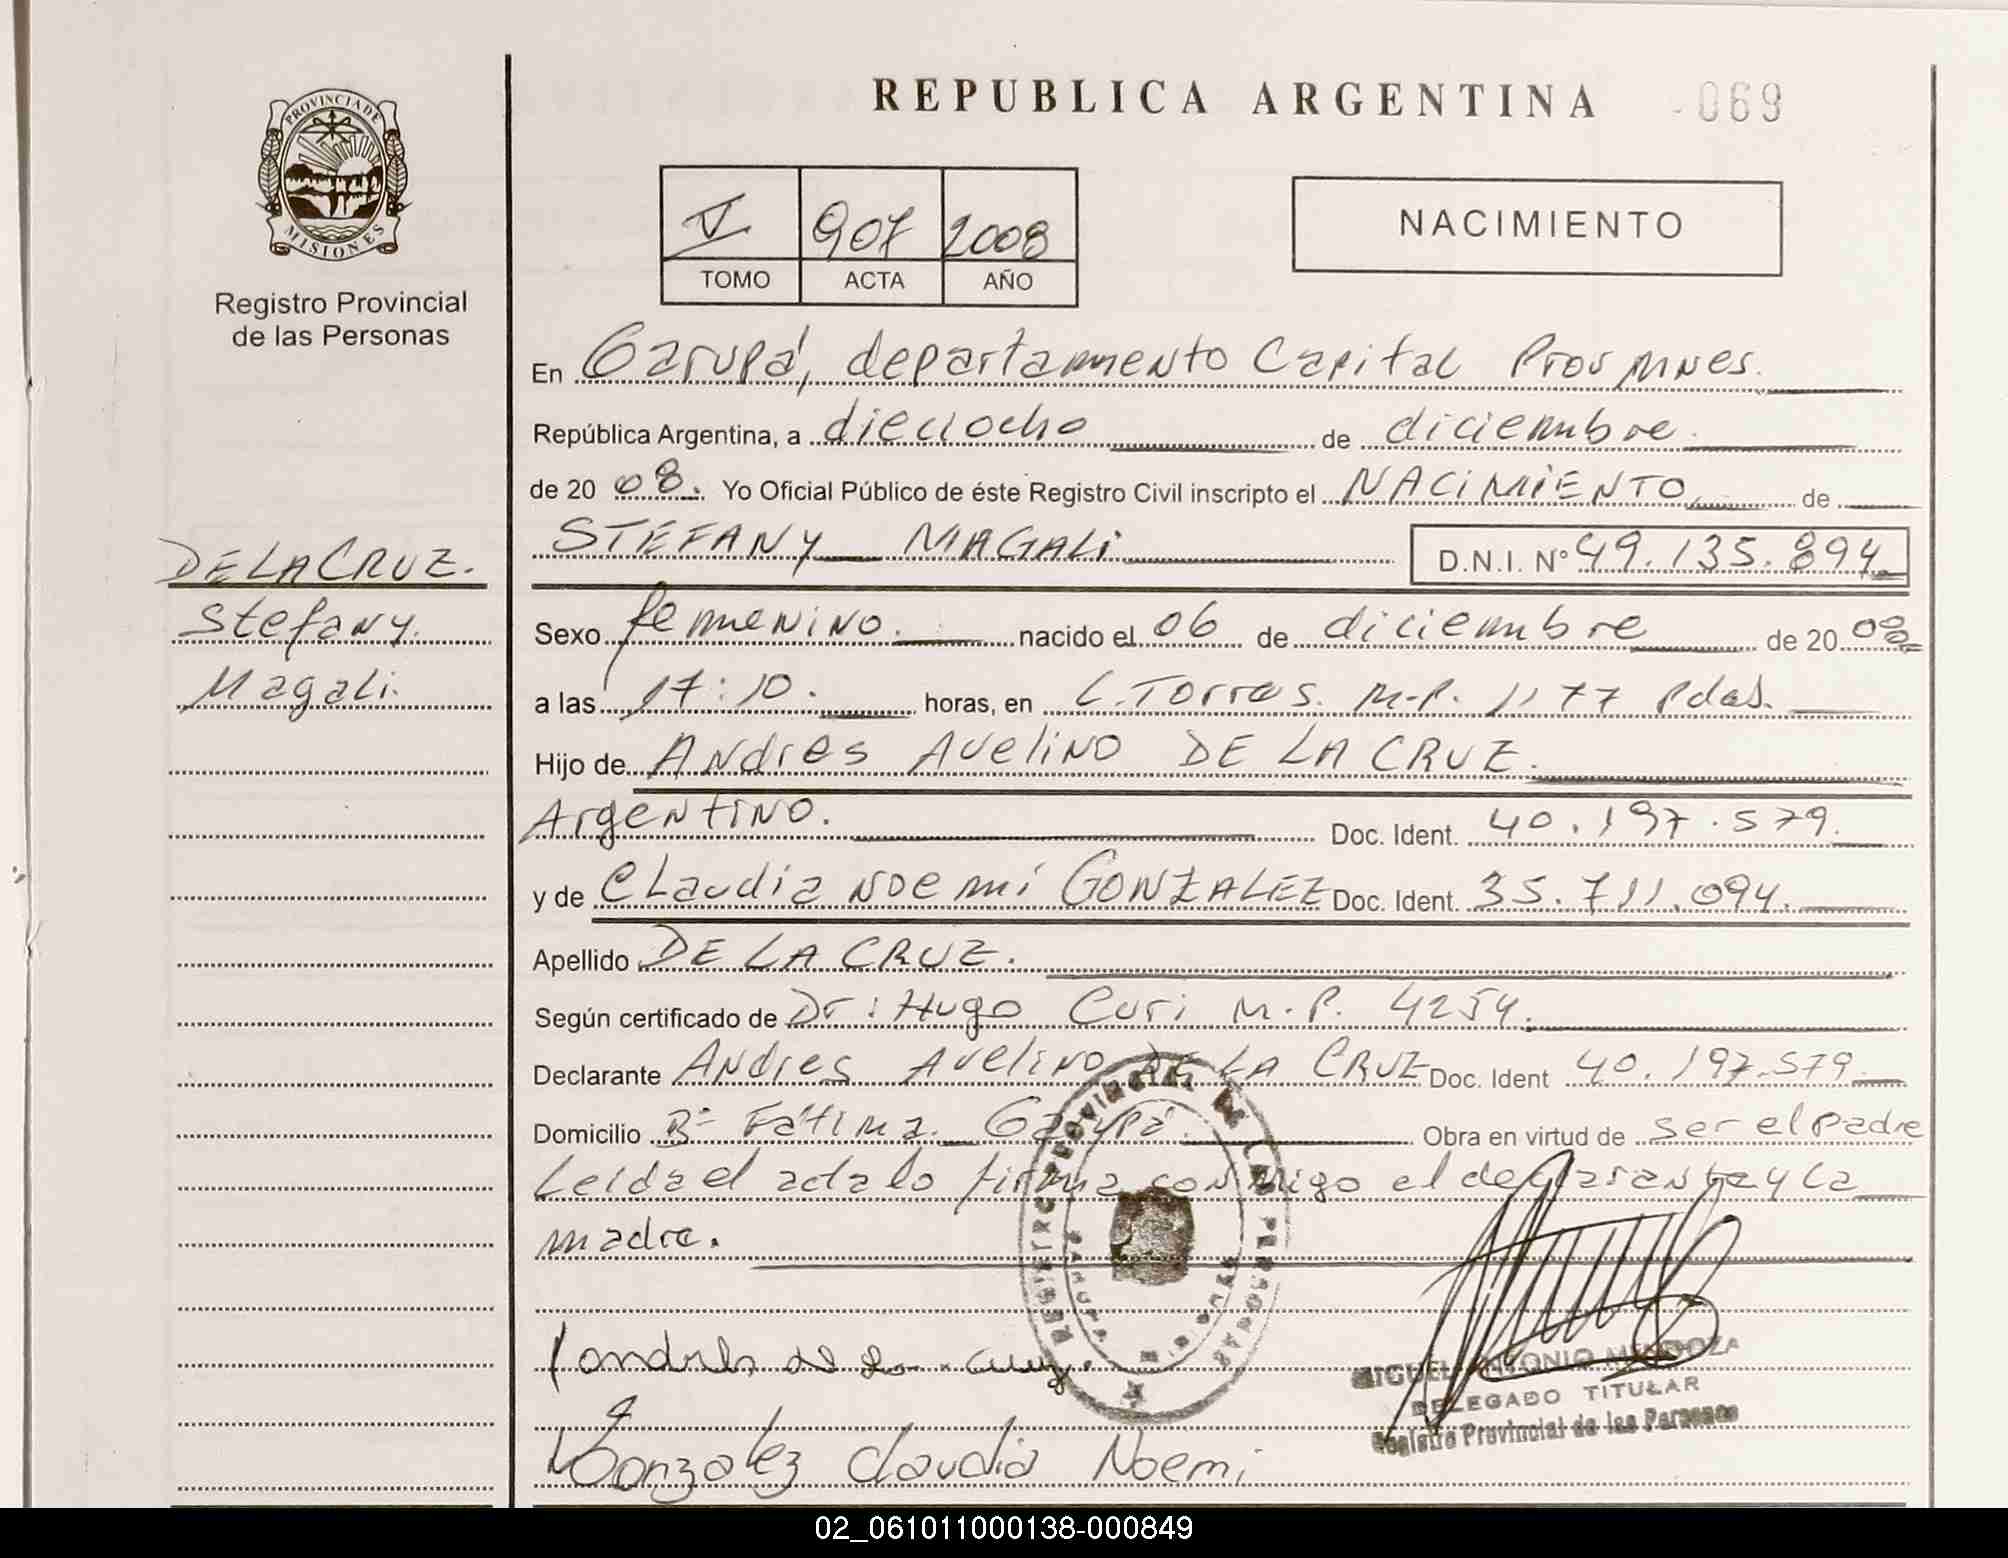 REPUBLICA ARGENTINA 069
PROVINCIA DE MISIONES
Registro Provincial
de las Personas
V 907 2008
TOMO ACTA AÑO
NACIMIENTO
En Garupá, departamento Capital Prov Mnes.
República Argentina, a dieciocho de diciembre.
de 20 08. Yo Oficial Público de éste Registro Civil inscripto el NACIMIENTO de
STEFANY MAGALI D.N.I. N° 49.135.894
DE LA CRUZ.
Stefany
Magali.
Sexo femenino. nacido el 06 de diciembre de 20 08
a las 17:10. horas, en L. Torres. M.P. 1177 Pdas.
Hijo de Andres Avelino DE LA CRUZ.
Argentino. Doc. Ident. 40.197.579.
y de Claudia Noemí GONZALEZ Doc. Ident. 35.711.094.
Apellido DE LA CRUZ.
Según certificado de Dr: Hugo Curi M.P. 4254.
Declarante Andres Avelino DE LA CRUZ Doc. Ident 40.197.579.
Domicilio B° Fátima. Garupá. Obra en virtud de ser el padre
Leida el acta lo firma conmigo el declarante y la
madre.
REGISTRO PROVINCIAL DE LAS PERSONAS
GARUPA
andres de la cruz.
MIGUEL ANTONIO MENDOZA
DELEGADO TITULAR
Registro Provincial de las Personas
Gonzalez Claudia Noemi
02_061011000138-000849